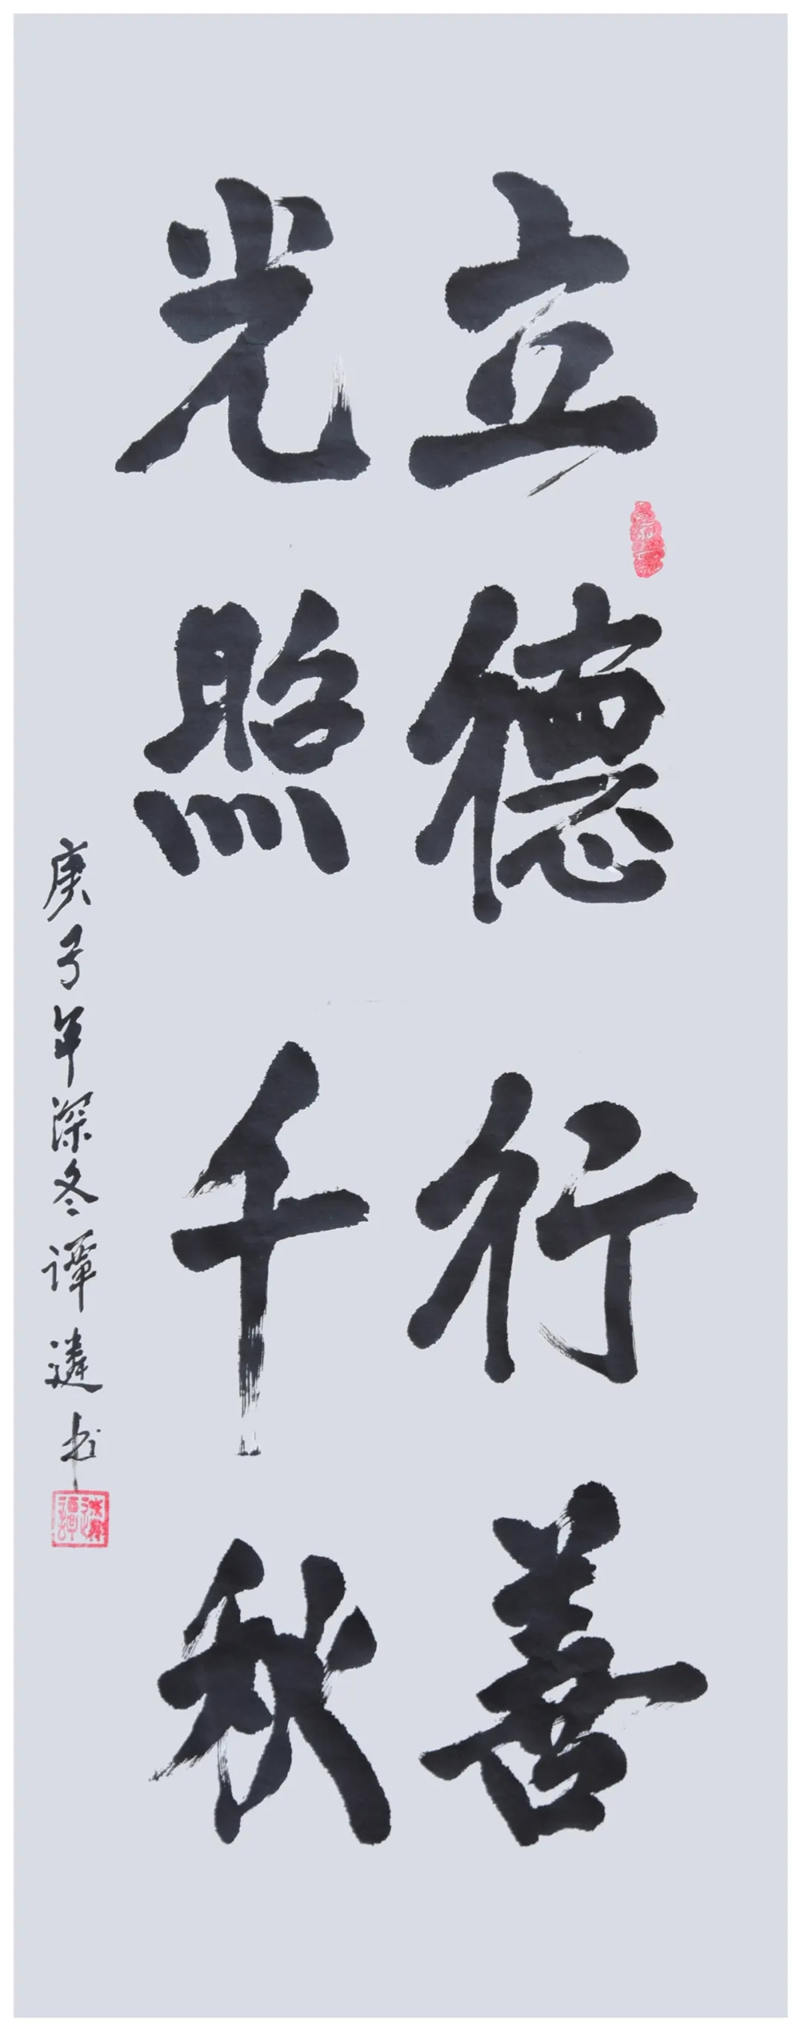 立德行善
光照千秋
庚子年深冬谭遴书